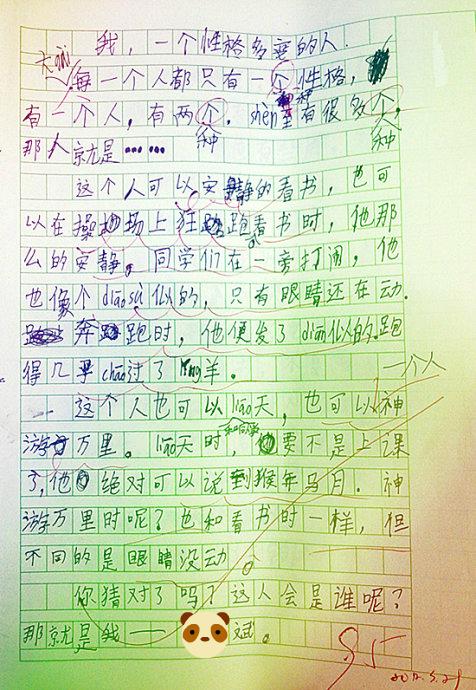 我，一个性格多变的人.
大gài
每一个人都只有一个性格，
有一个人，有两个．shèn至有很多个，
种
种
那人就是……
这个人可以安静的看书，也可
以在操场上狂跑。看书时，他那
么的安静。同学们在一旁打闹，他
也像个diāosù似的，只有眼睛还在动.
奔跑时，他便发了diān似的.跑
得几乎chāo过了líng羊.
一个人
这个人也可以liáo天，也可以神
游万里。liáo天时，他要不是上课
和同学
了，他绝对可以说到猴年马月.神
游万里时呢？也和看书时一样，但
不同的是眼睛没动。
你猜对了吗？这人会是谁呢？
那就是我——斌。